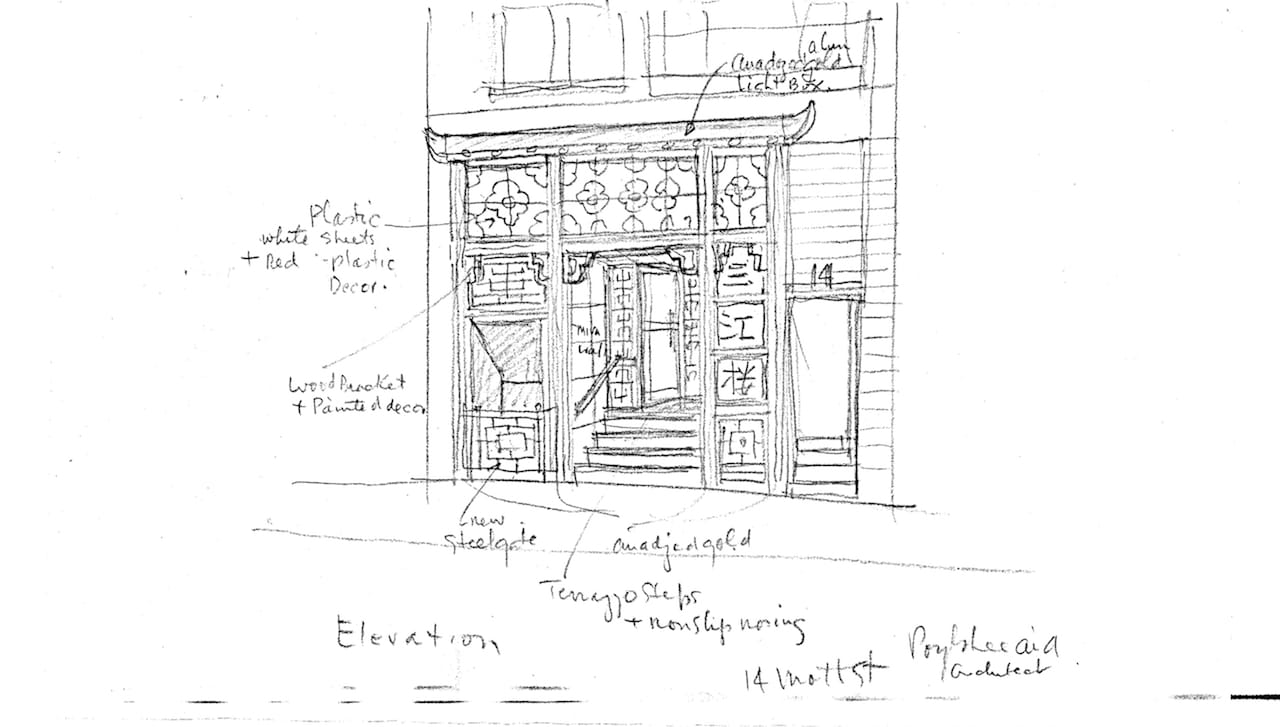 alum
anadjedgold
Light Box.
Plastic
white sheets
+ Red plastic
Decor.
14
三
江
祥
wood Bracket
+ Painted decor
new
Steelgate
anadjedgold
Terrazzo Steps
+ nonslip nosing
Elevation
14 Mott St
Poy
architect